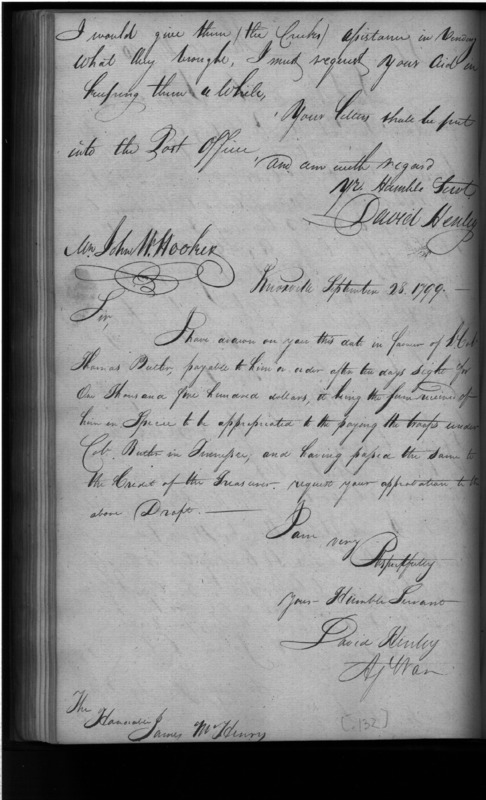 I would give them (the Creeks) assistance in
what they brought, I must request your Aid in
keeping them a while,
Your letters shall be put
into the Post Office
and am with regard
Yr. Humble Servt
David Henley
Mr. John W. Hooker
Knoxville September 28. 1799. —
Sir,
I have drawn on you this date in favour of Lt. Col.
Thomas Butler, payable to him or order after ten days sight for
One Thousand five hundred dollars, it being the sum received of
him in Specie to be appropriated to the paying the troops under
Col. Butler in Tennessee, and having passed the same to
the Credit of the Treasurer. request your approbation to the
above Draft. —
I am very
Respectfully
Your Humble Servant
David Henley
Agt. War
The
Honorable
James McHenry
[132]